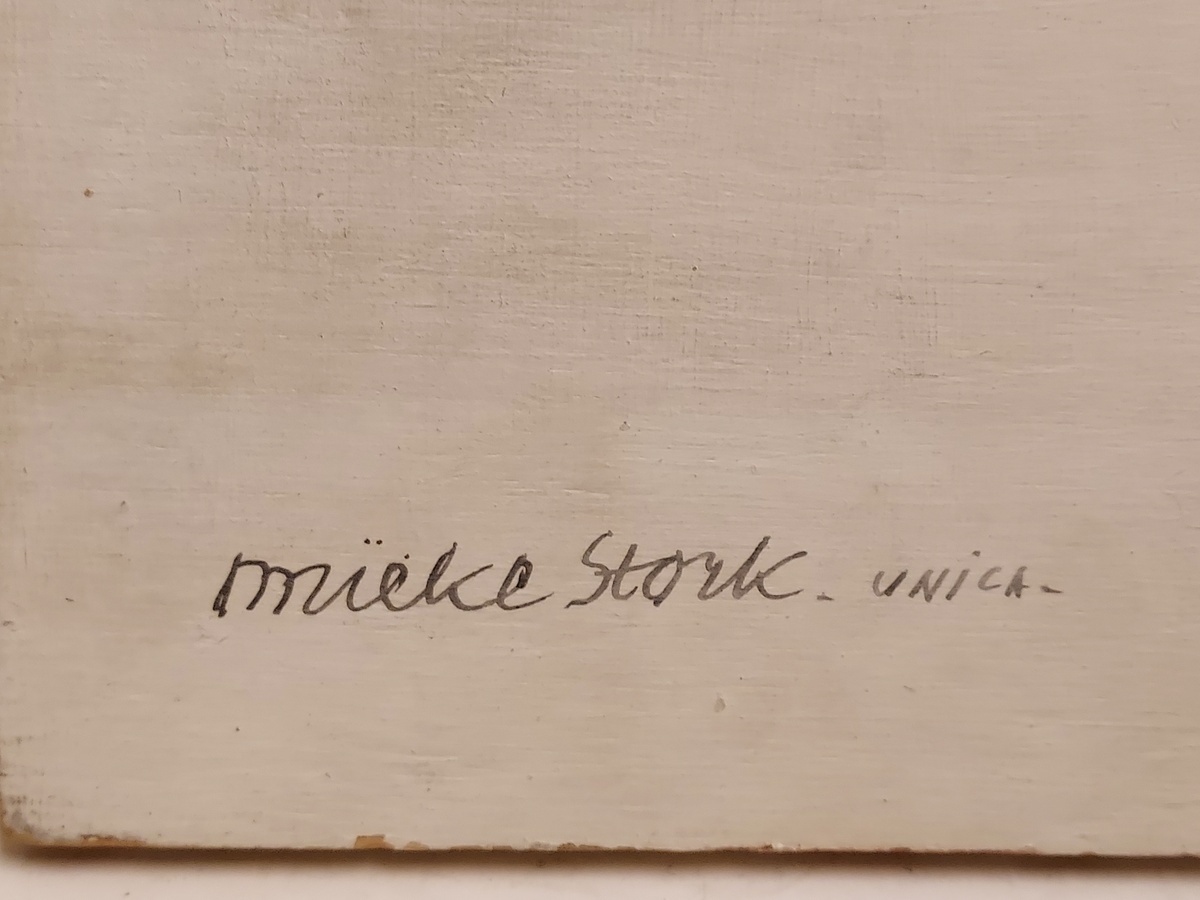 mieke Stork. UNiCA-